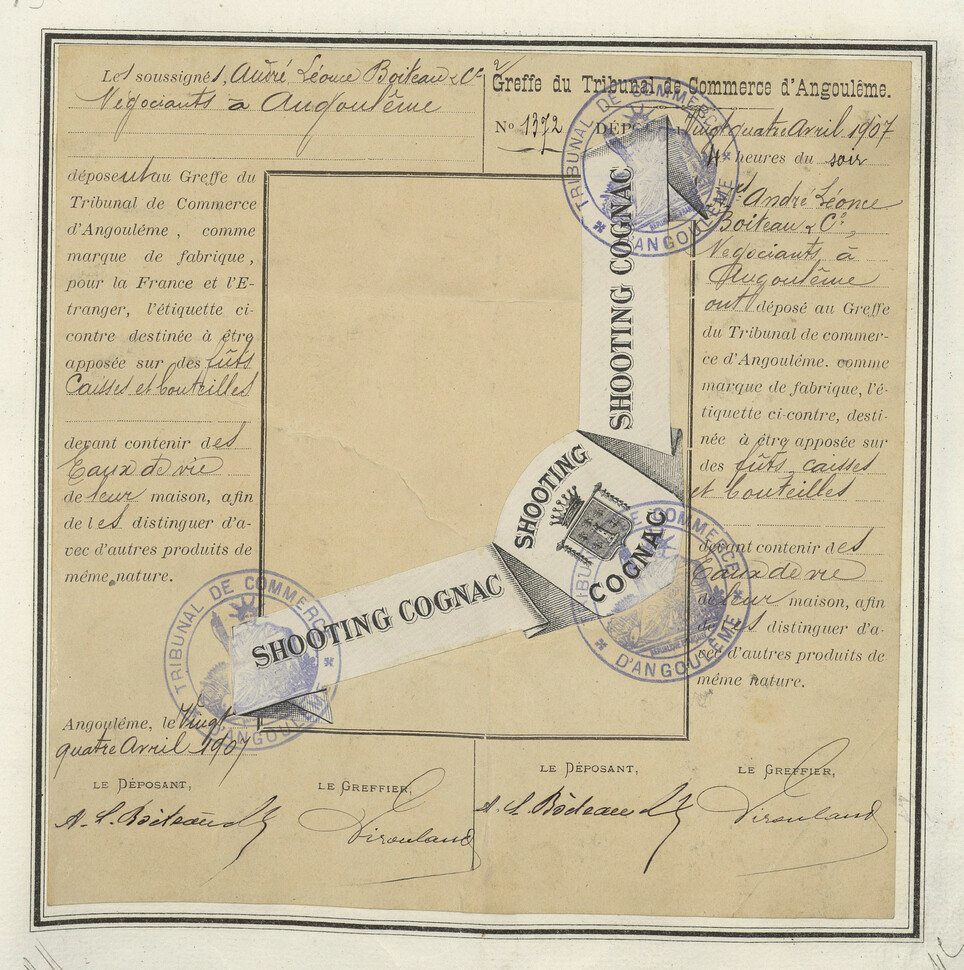 Les soussignés, André Léonce Boiteau & Cie
Négociants à Angoulême
déposent au Greffe du
Tribunal de Commerce
d'Angoulême, comme
marque de fabrique,
pour la France et l'E-
tranger, l'étiquette ci-
contre destinée à être
apposée sur des fûts
Caisses et bouteilles
devant contenir des
Eaux de vie
de leur maison, afin
de les distinguer d'a-
vec d'autres produits de
même nature.
Angoulême, le Vingt
quatre Avril 1907
LE DÉPOSANT,
LE GREFFIER,
A. L. Boiteau
SHOOTING COGNAC
SHOOTING COGNAC
SHOOTING COGNAC
SHOOTING
COGNAC
TRIBUNAL DE COMMERCE
D'ANGOULÊME
TRIBUNAL DE COMMERCE
D'ANGOULÊME
TRIBUNAL DE COMMERCE
D'ANGOULÊME
Greffe du Tribunal de Commerce d'Angoulême.
No 1372 DÉPOT Vingt quatre Avril 1907
4 heures du soir
André Léonce
Boiteau & Co,
Négociants à
Angoulême
ont déposé au Greffe
du Tribunal de commer-
ce d'Angoulême. comme
marque de fabrique, l'é-
tiquette ci-contre, desti-
née à être apposée sur
des fûts caisses
et bouteilles
devant contenir des
Eaux de vie
de leur maison, afin
de les distinguer d'a-
vec d'autres produits de
même nature.
LE DÉPOSANT,
LE GREFFIER,
A. L. Boiteau